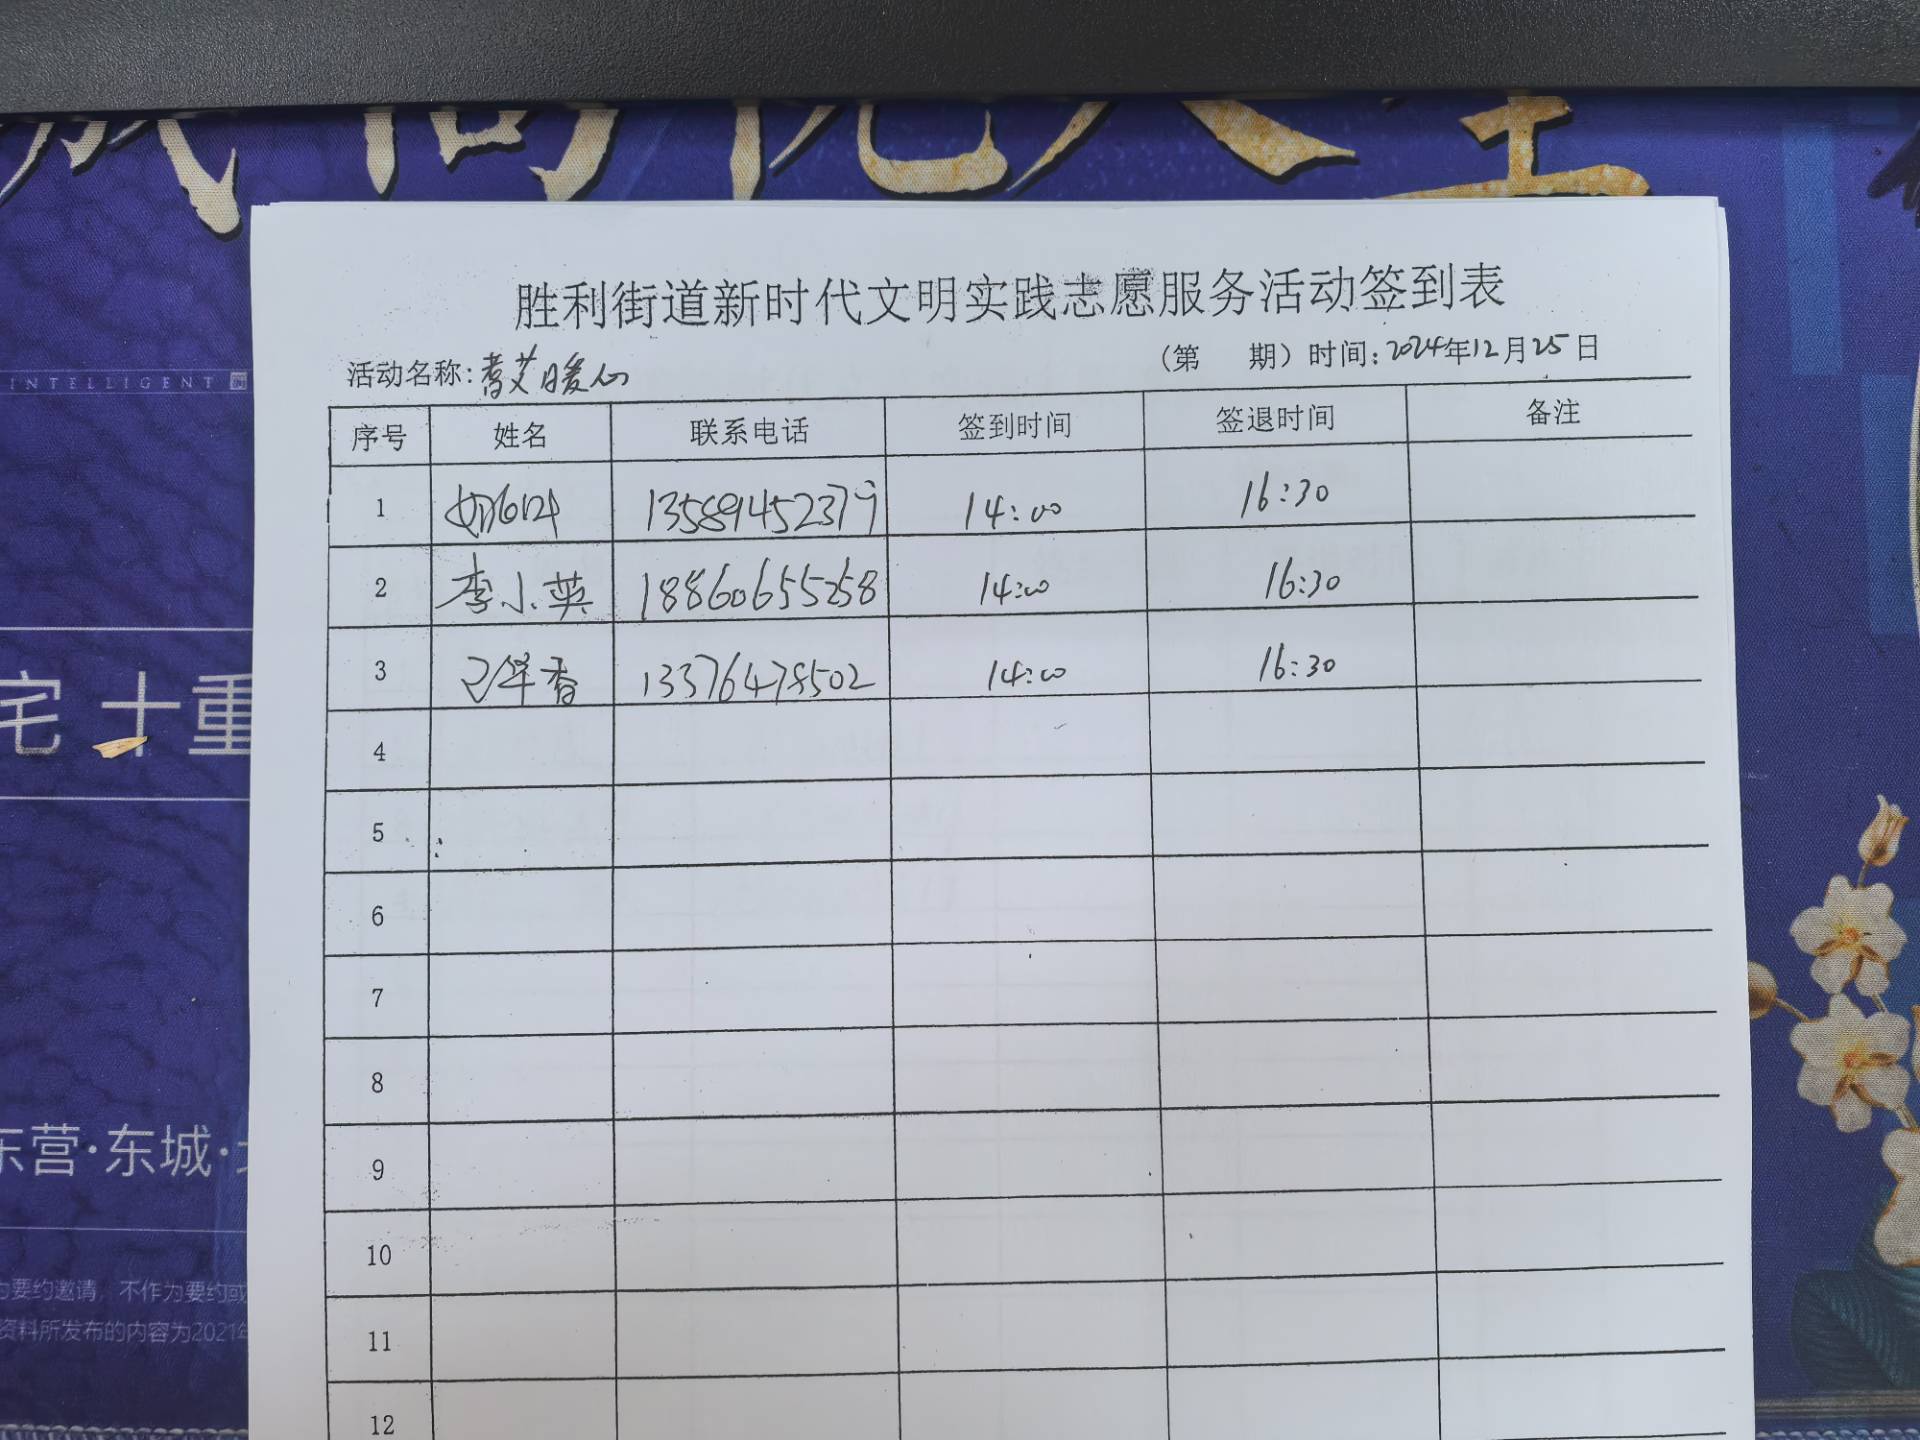 INTELLIGENT
宅 十重
东营·东城·
为要约邀请，不作为要约或
资料所发布的内容为2021年
胜利街道新时代文明实践志愿服务活动签到表
活动名称:耆艾暖心 （第 期）时间:2024年12月25日
序号 姓名 联系电话 签到时间 签退时间 备注
1 13589452379 14:00 16:30
2 李小英 18860655258 14:00 16:30
3 13376478502 14:00 16:30
4
5
6
7
8
9
10
11
12